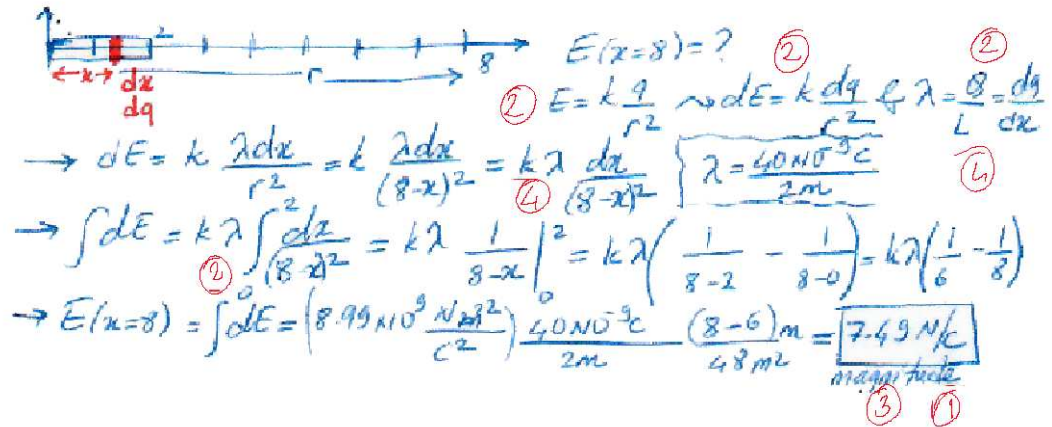 2 8 E(x=8)=?
← x → dx r → ② ②
dq ② E = k q/r² ⤳ dE = k dq/r² & λ = Q/L = dq/dx
→ dE = k λdx/r² = k λdx/(8-x)² = kλ dx/(8-x)² λ = 40x10⁻⁹C/2m ④ ④
→ ∫dE = kλ ∫₀² dx/(8-x)² = kλ 1/(8-x) |₀² = kλ(1/(8-2) - 1/(8-0)) = kλ(1/6 - 1/8) ②
→ E(x=8) = ∫dE = (8.99x10⁹ Nm²/C²) 40x10⁻⁹C/2m (8-6)m/48m² = 7.49 N/C
magnitude
③ ①